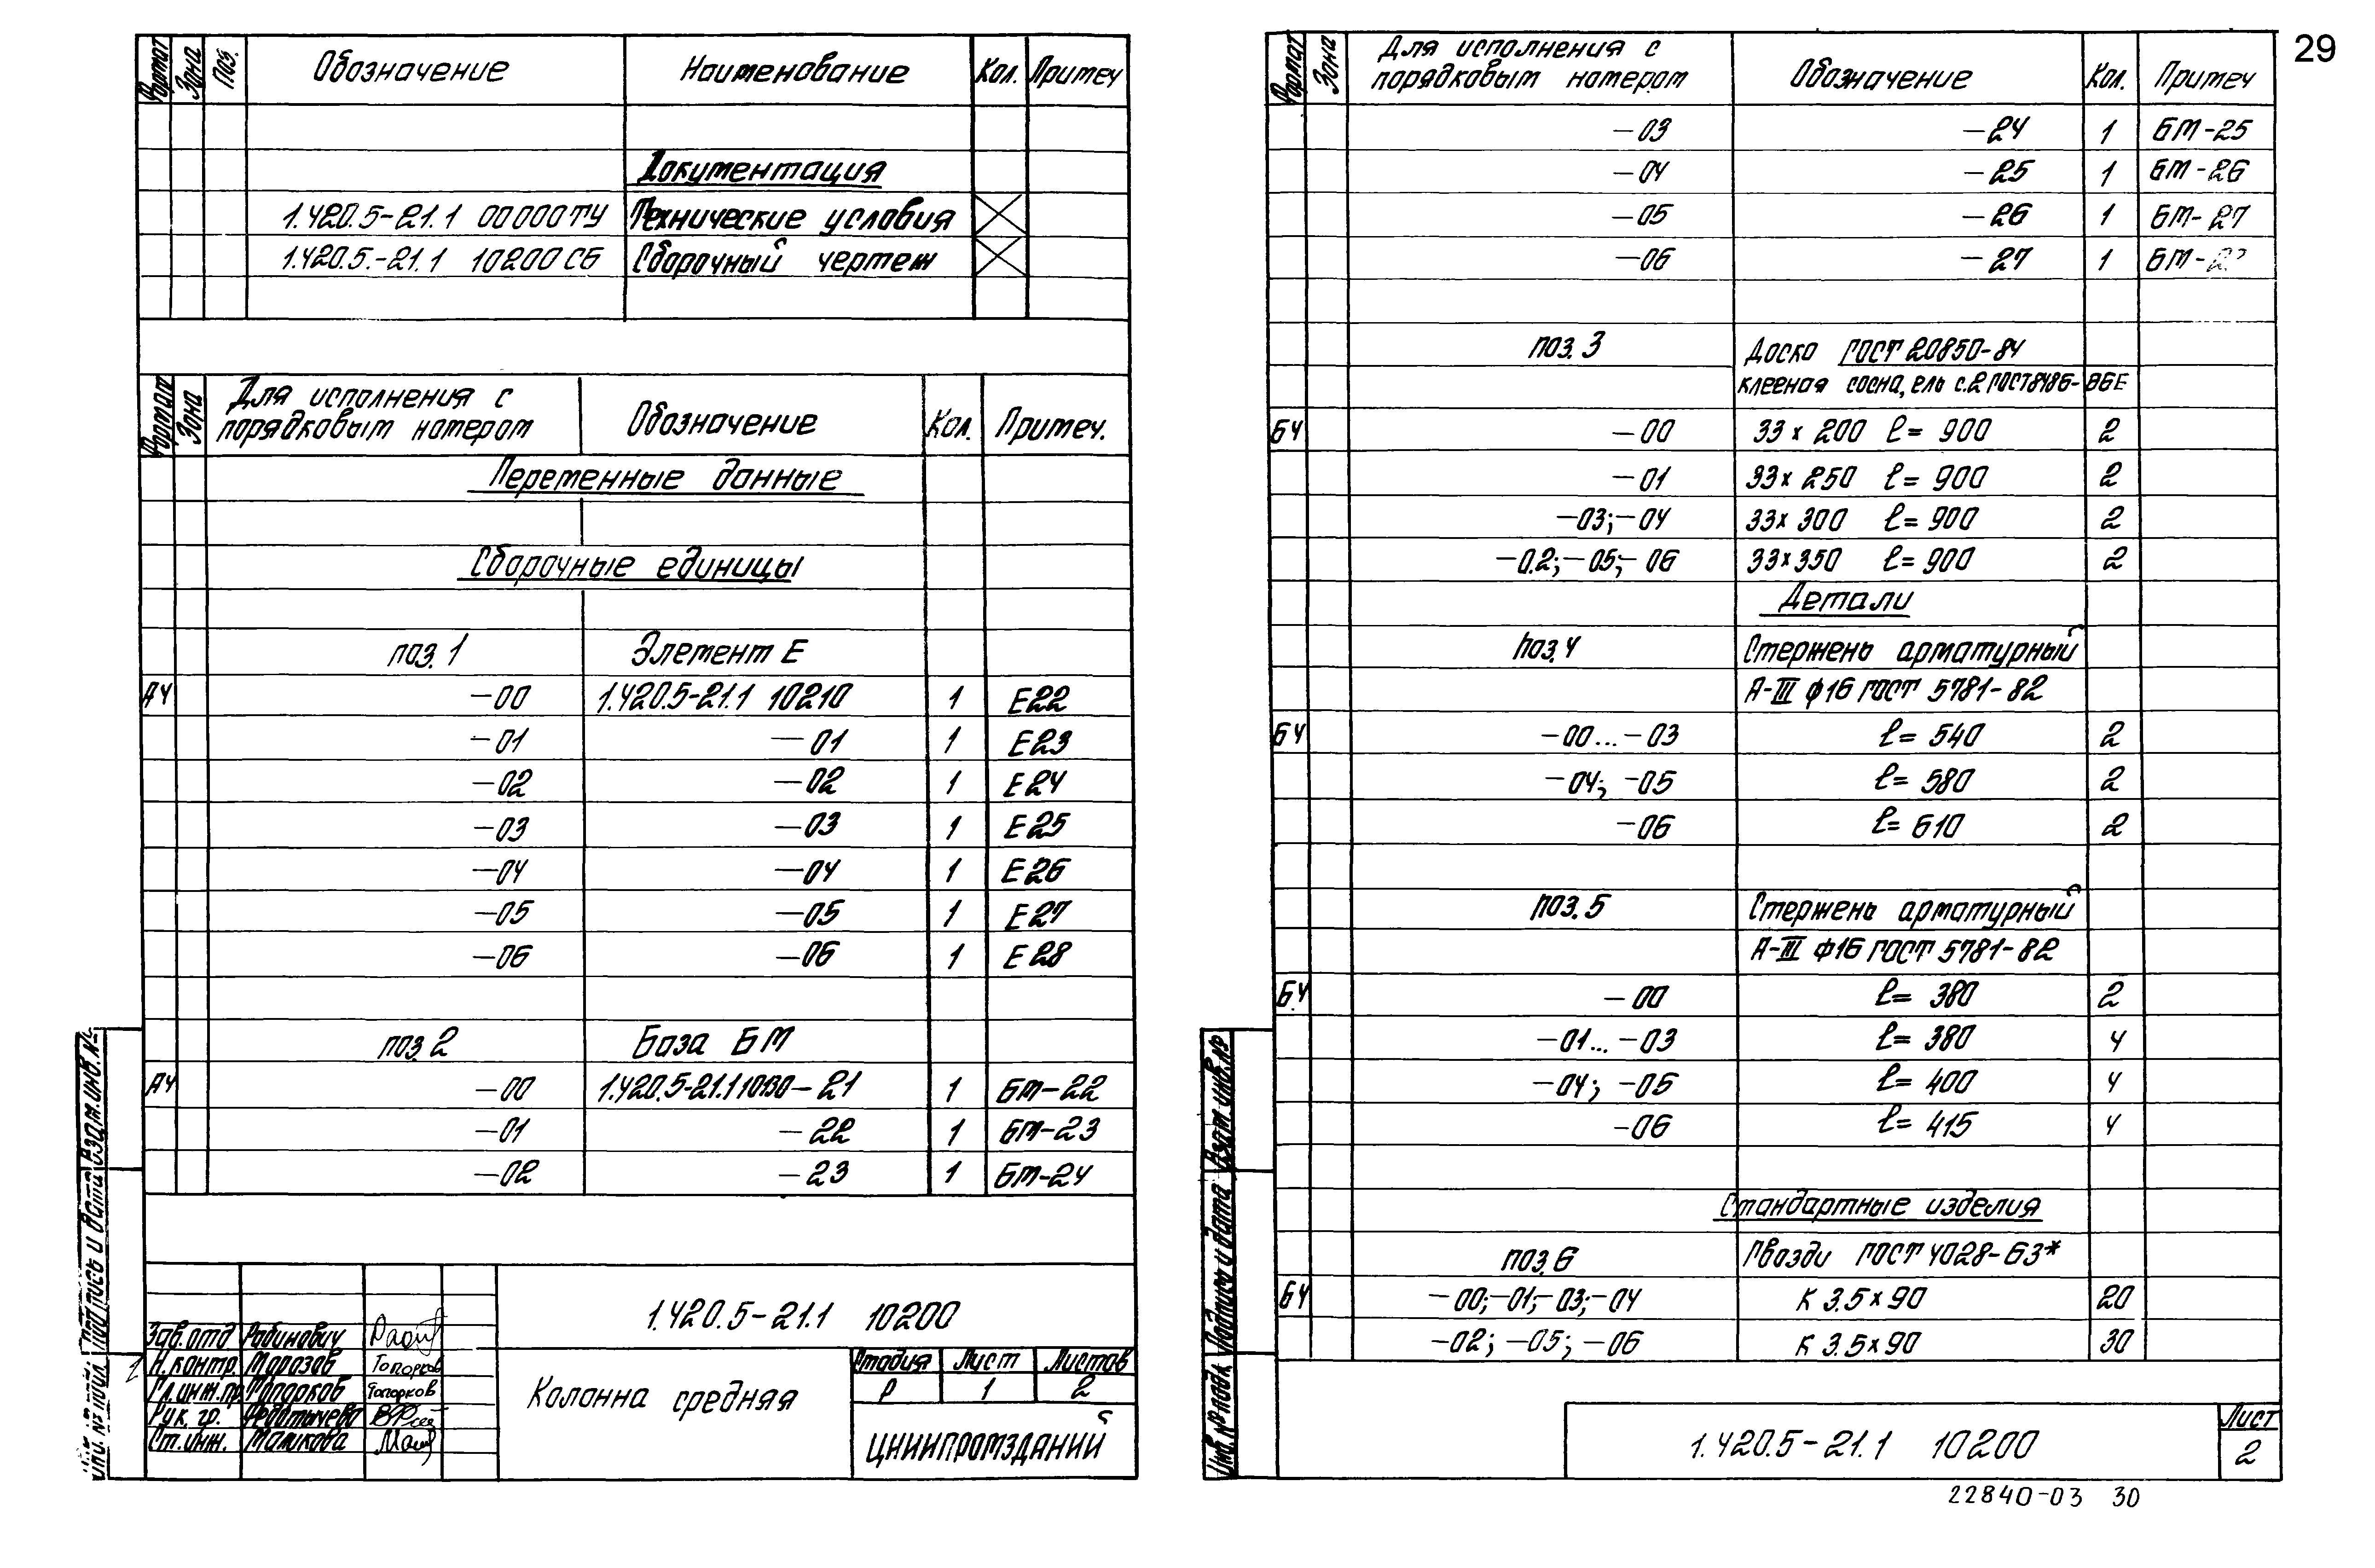 29
Формат Зона Поз. Обозначение Наименование Кол. Примеч
Документация
1.420.5-21.1 00000ТУ Технические условия
1.420.5.-21.1 10200СБ Сборочный чертеж
Формат Зона Для исполнения с порядковым номером Обозначение Кол. Примеч.
Переменные данные
Сборочные единицы
поз.1 Элемент Е
А4 -00 1.420.5-21.1 10210 1 Е22
-01 -01 1 Е23
-02 -02 1 Е24
-03 -03 1 Е25
-04 -04 1 Е26
-05 -05 1 Е27
-06 -06 1 Е28
поз.2 База БМ
А4 -00 1.420.5-21.1 10130-21 1 БМ-22
-01 -22 1 БМ-23
-02 -23 1 БМ-24
Взам.инв.№
Подпись и дата
1.420.5-21.1 10200
Зав.отд Рабинович
Н.контр. Морозов
Гл.инж.пр Топорков Топорков
Рук. гр.
Ст.инж. Маликова
Колонна средняя
Стадия Лист Листов
Р 1 2
ЦНИИПРОМЗДАНИЙ
Формат Зона Для исполнения с порядковым номером Обозначение Кол. Примеч
-03 -24 1 БМ-25
-04 -25 1 БМ-26
-05 -26 1 БМ-27
-06 -27 1 БМ-
поз.3 Доска ГОСТ 20850-84
клееная сосна, ель с.2 ГОСТ8486-86Е
БЧ -00 33х200 ℓ=900 2
-01 33х250 ℓ=900 2
-03;-04 33х300 ℓ=900 2
-0.2;-05;-06 33х350 ℓ=900 2
Детали
поз.4 Стержень арматурный
А-III ф16 ГОСТ 5781-82
БЧ -00...-03 ℓ=540 2
-04; -05 ℓ=580 2
-06 ℓ=610 2
поз.5 Стержень арматурный
А-III ф16 ГОСТ 5781-82
БЧ -00 ℓ=380 2
-01...-03 ℓ=380 4
-04; -05 ℓ=400 4
-06 ℓ=415 4
Стандартные изделия
поз.6 Гвозди ГОСТ 4028-63*
БЧ -00;-01;-03;-04 К 3.5х90 20
-02; -05; -06 К 3.5х90 30
Взам.инв.№
Подпись и дата
Инв.№ подл.
1.420.5-21.1 10200
Лист
2
22840-03 30